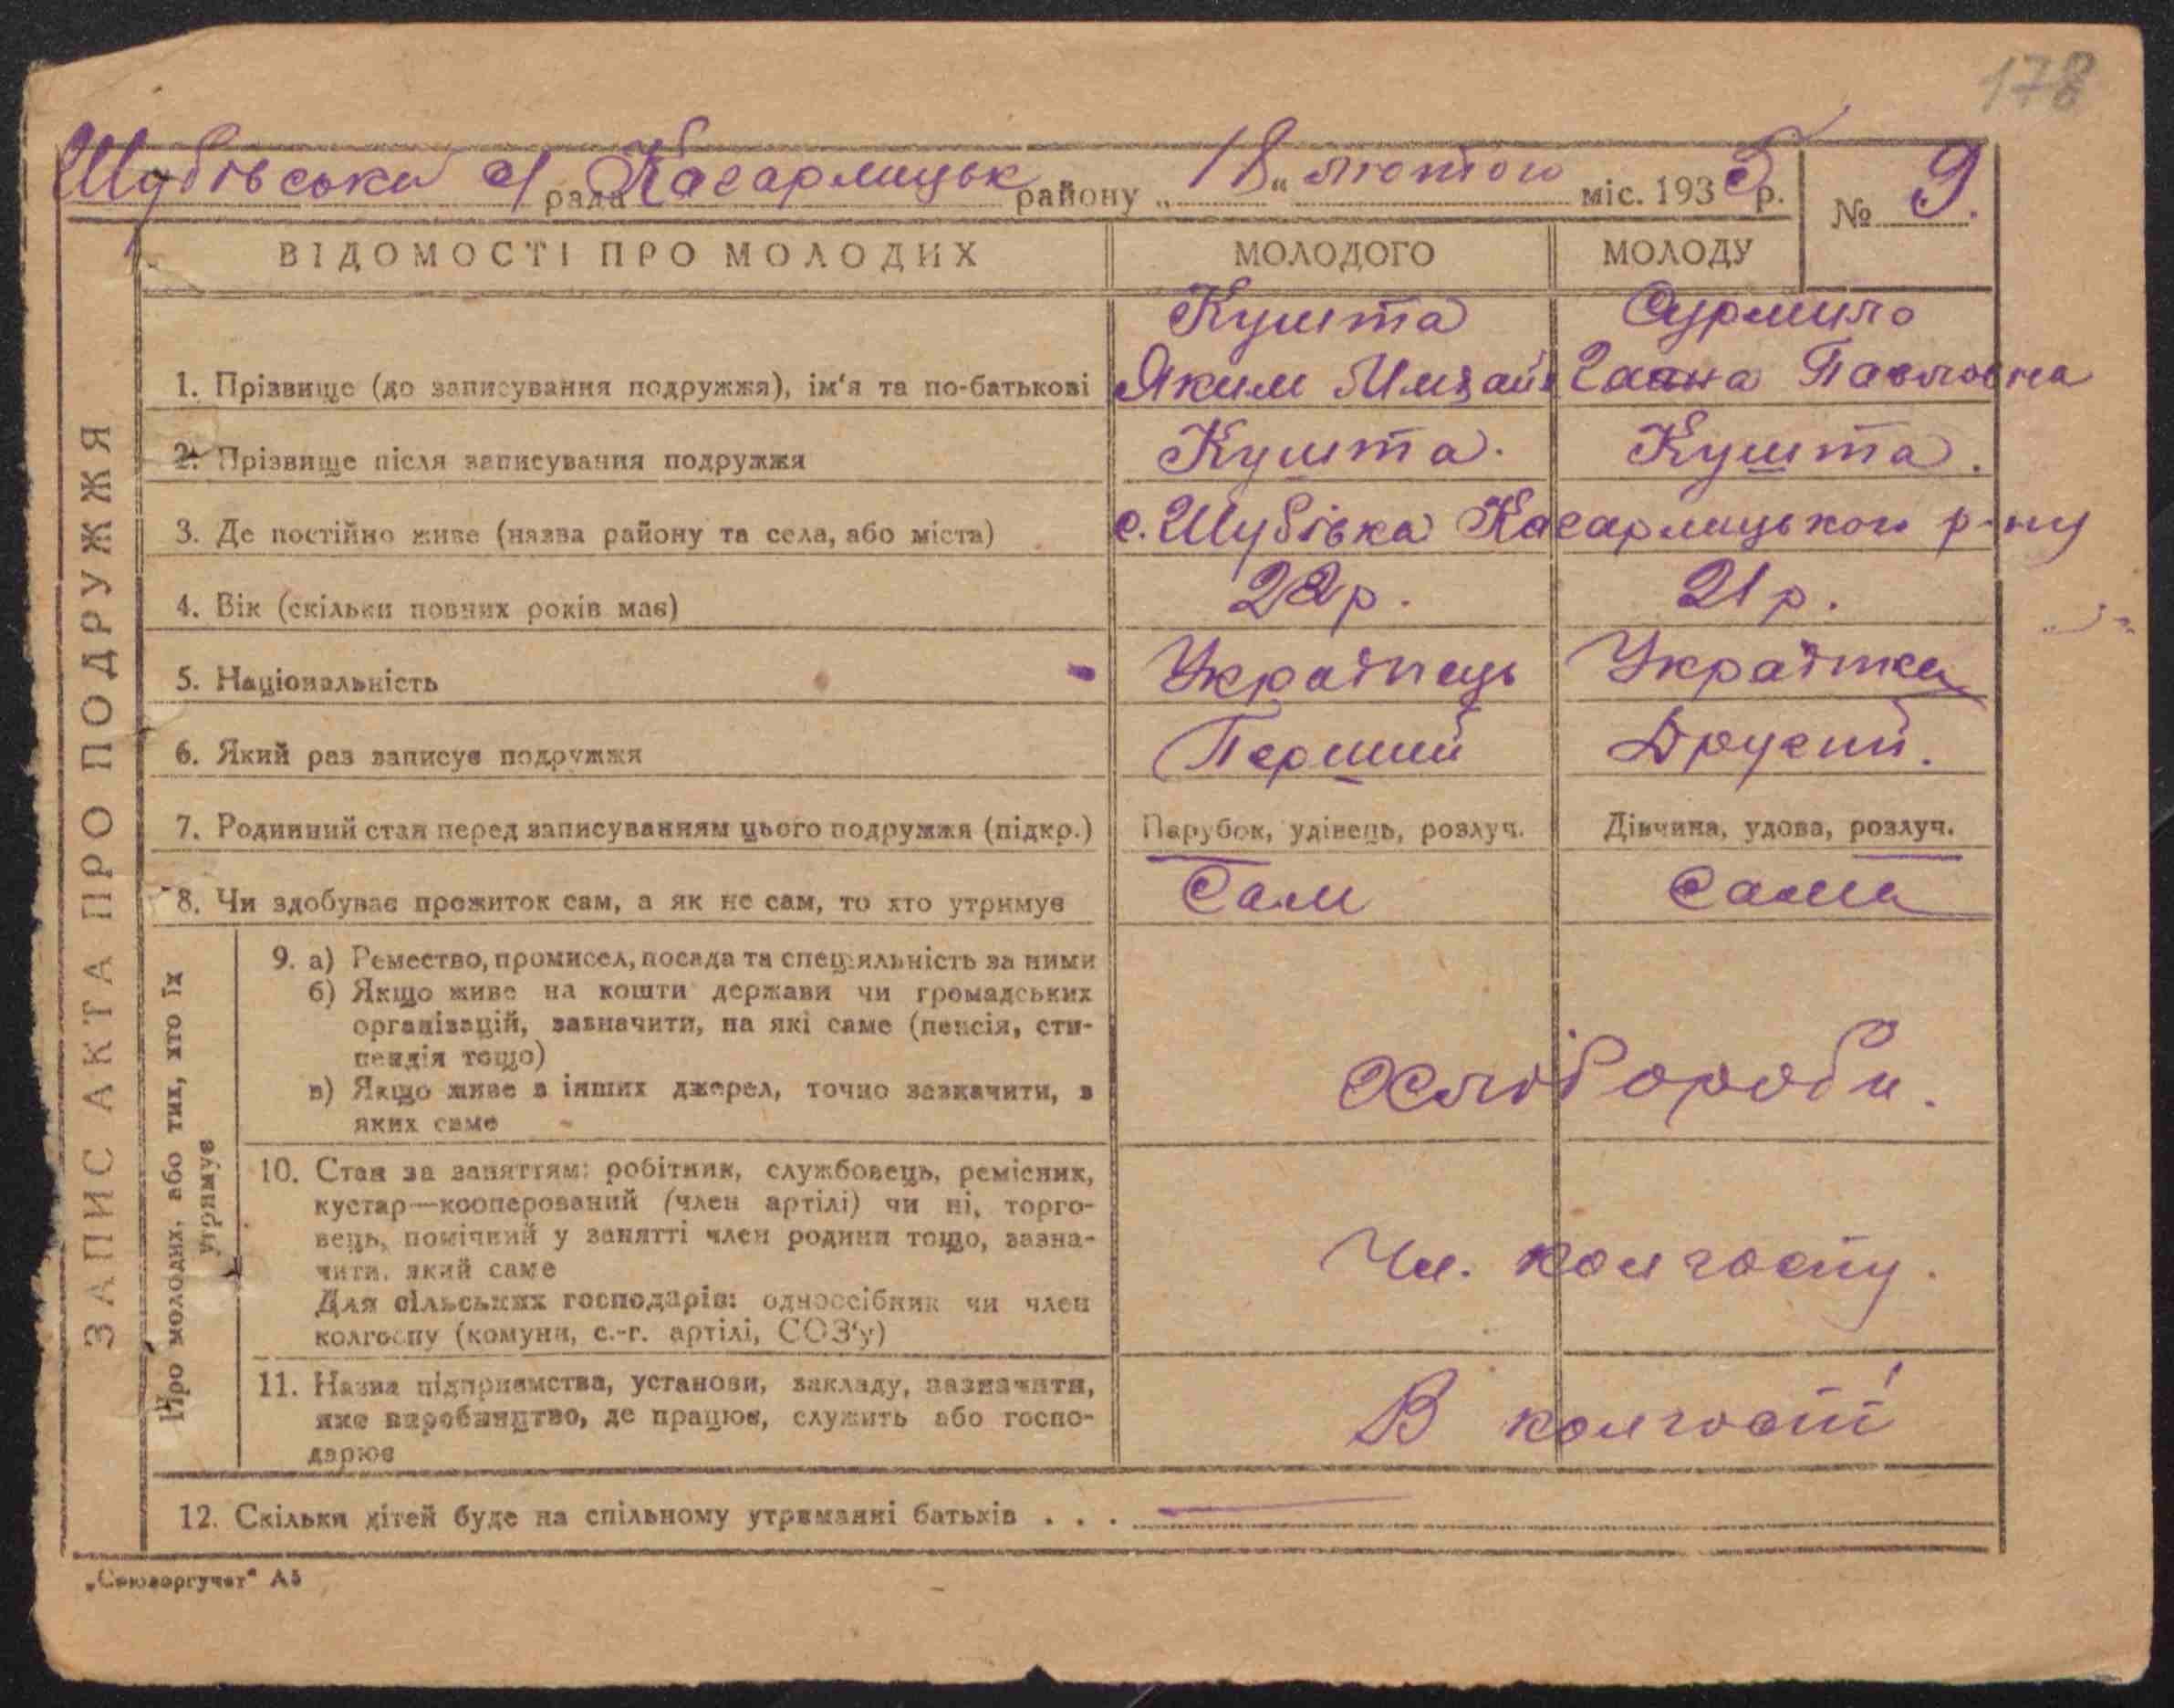 178
Шубівська с/ рада Кагарлицьк району „18“ лютого міс. 1935 р. № 9.
ЗАПИС АКТА ПРО ПОДРУЖЖЯ
ВІДОМОСТІ ПРО МОЛОДИХ МОЛОДОГО МОЛОДУ
Кушта Сурмило
1. Прізвище (до записування подружжя), ім'я та по-батькові Яким Михай Ганна Павловна
2. Прізвище після записування подружжя Кушта. Кушта.
3. Де постійно живе (назва району та села, або міста) с. Шубівка Кагарлицького р-ну
4. Вік (скільки повних років має) 22 р. 21 р.
5. Національність Українець Українка
6. Який раз записує подружжя Перший Другий.
7. Родинний стан перед записуванням цього подружжя (підкр.) Парубок, удівець, розлуч. Дівчина, удова, розлуч.
8. Чи здобуває прожиток сам, а як не сам, то хто утримує Сам Сама
Про молодих, або тих, хто їх
утримує
9. а) Ремество, промисел, посада та спеціяльність за ними
б) Якщо живе на кошти держави чи громадських
організацій, зазначити, на які саме (пенсія, сти-
пендія тощо)
в) Якщо живе з інших джерел, точно зазначити, з
яких саме
Хлібороби.
10. Стан за заняттям: робітник, службовець, ремісник,
кустар—кооперований (член артілі) чи ні, торго-
вець, помічний у занятті член родини тощо, зазна-
чити, який саме
Для сільських господарів: одноосібник чи член
колгоспу (комуни, с.-г. артілі, СОЗ'у)
Чл. колгоспу.
11. Назва підприємства, установи, закладу, зазначити,
яке виробництво, де працює, служить або госпо-
дарює
В колгоспі
12. Скільки дітей буде на спільному утриманні батьків . . .
„Союзоргучет“ А5